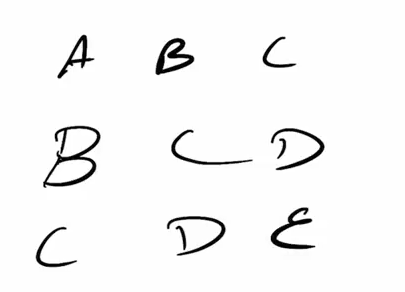 A B C
B C D
C D E